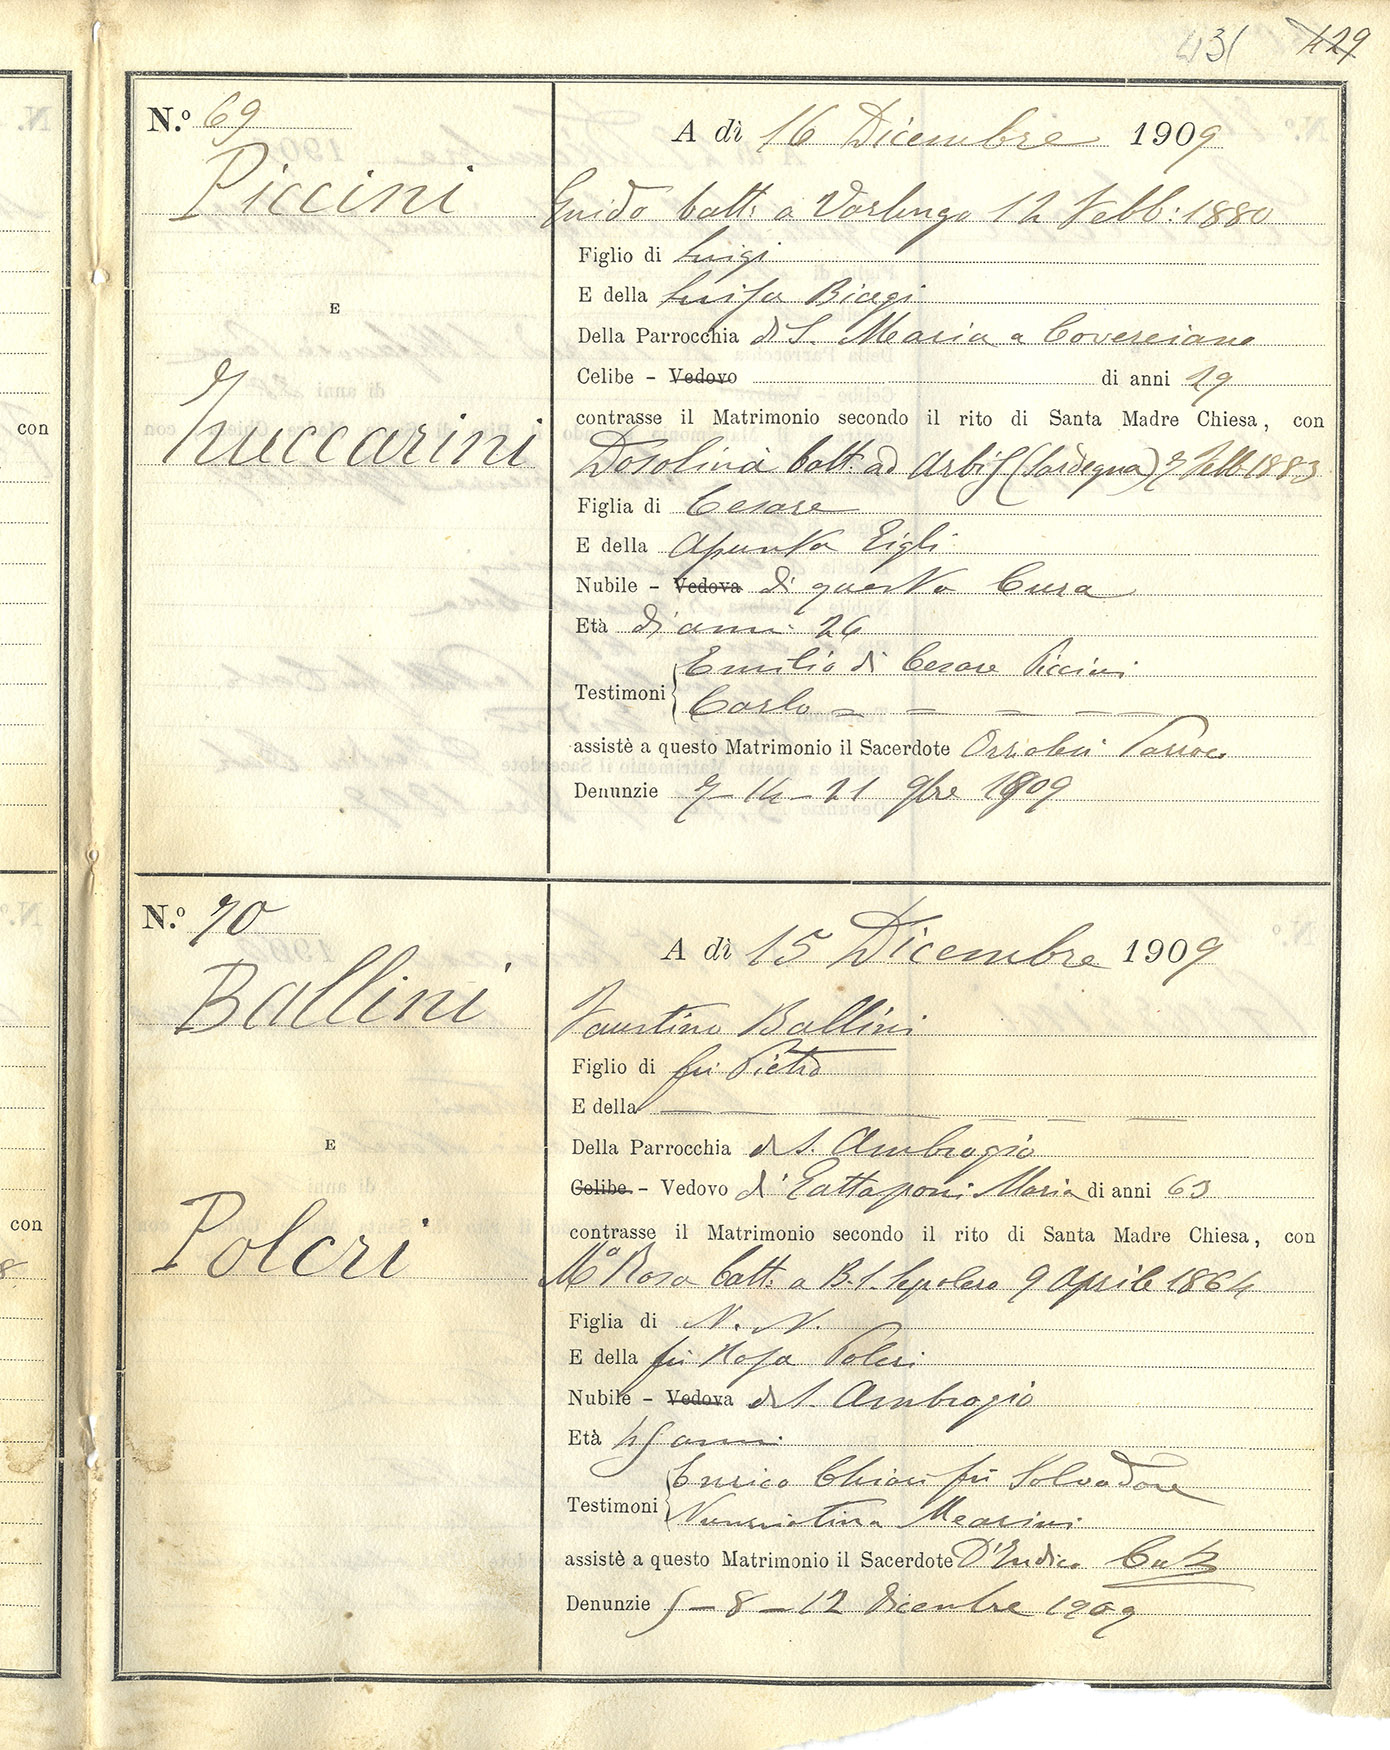 431 429
N.º 69
A dì 16 Dicembre 1909
Piccini
Guido batt: a Varlungo 12 Febb: 1880
Figlio di Luigi
E della Luisa Biagi
E
Della Parrocchia di S. Maria a Coverciano
Celibe - Vedovo di anni 29
contrasse il Matrimonio secondo il rito di Santa Madre Chiesa, con
Zuccarini
Dosolina batt: ad (Sardegna) 7 Febb 1883
Figlia di Cesare
E della Assunta Gigli
Nubile - Vedova di questa Cura
Età di anni 26
Testimoni Emilio di Cesare Piccini
Carlo — — — —
assistè a questo Matrimonio il Sacerdote Parroco
Denunzie 7 - 14 - 21 9bre 1909
N.º 70
A dì 15 Dicembre 1909
Ballini
Faustino Ballini
Figlio di fu Pietro
E della — — — — — —
E
Della Parrocchia di S. Ambrogio
Celibe - Vedovo di Gattaponi Maria di anni 63
contrasse il Matrimonio secondo il rito di Santa Madre Chiesa, con
Polcri
Mª Rosa batt: a B. S. Sepolcro 9 Aprile 1864
Figlia di N. N.
E della fu Rosa Polcri
Nubile - Vedova di S. Ambrogio
Età 45 anni
Testimoni Enrico Chiari fu Salvadore
Nunziatina Mearini
assistè a questo Matrimonio il Sacerdote D'Indico
Denunzie 5 - 8 - 12 Dicembre 1909
con
con
8